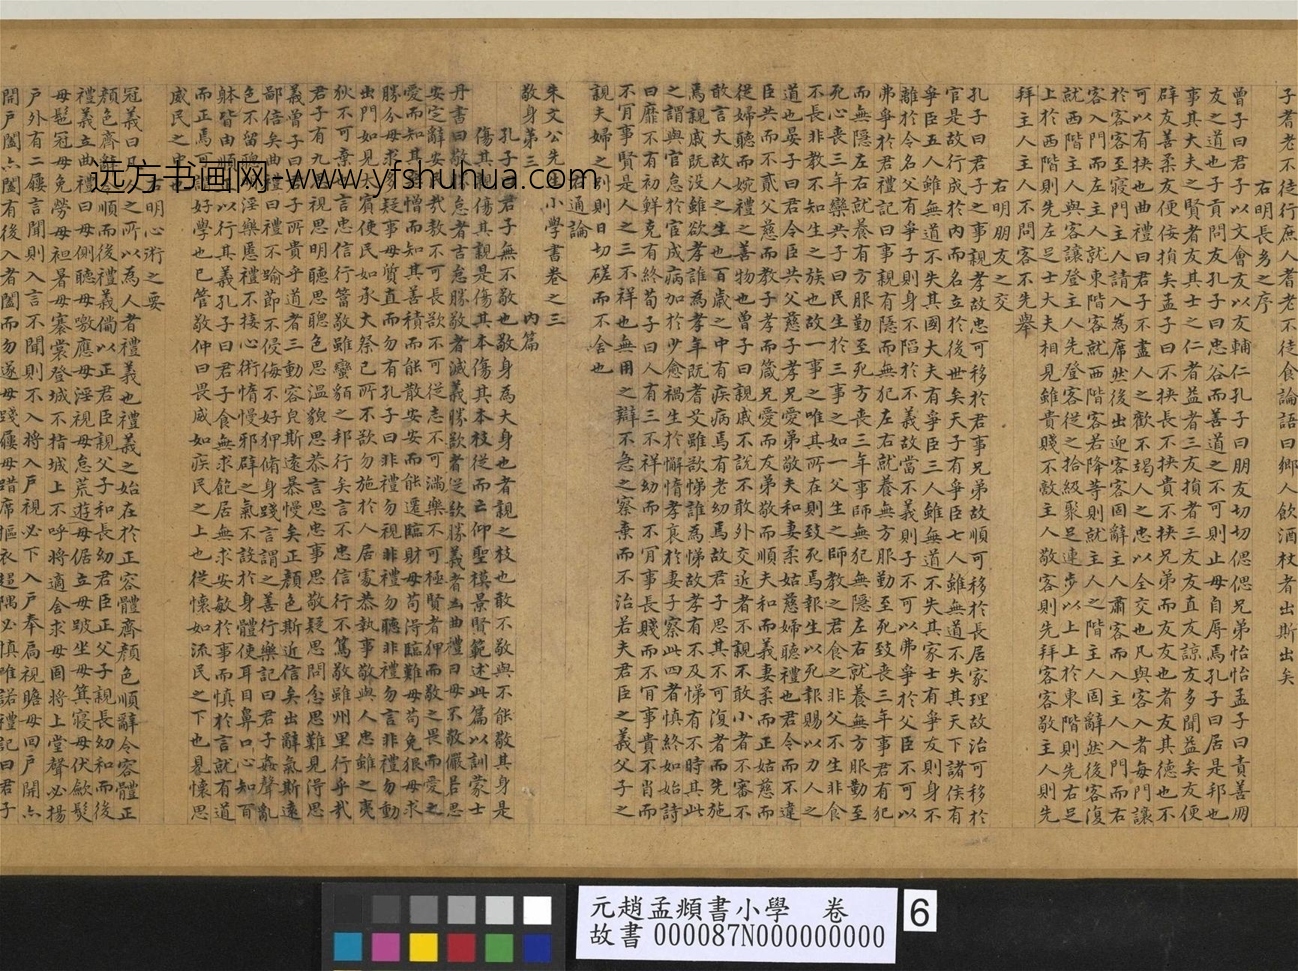 子者老不徒行庶人耆老不徒食論語曰鄉人飲酒杖者出斯出矣
右明長幼之序
曾子曰君子以文會友以友輔仁孔子曰朋友切切偲偲兄弟怡怡孟子曰責善朋
友之道也子貢問友孔子曰忠告而善道之不可則止毋自辱焉孔子曰居是邦也
事其大夫之賢者友其士之仁者益者三友損者三友友直友諒友多聞益矣友便
辟友善柔友便佞損矣孟子曰不挾長不挾貴不挾兄弟而友友也者友其德也不
可以有挾也曲禮曰君子不盡人之歡不竭人之忠以全交也凡與客入者每門讓
於客客至寢門主人請入為席然後出迎客客固辭主人肅客而入主人入門而右
客入門而左主人就東階客就西階客若降等則就主人之階主人固辭然後客復
就西階主人與客讓登主人先登客從之拾級聚足連步以上上於東階則先右足
上於西階則先左足士大夫相見雖貴賤不敵主人敬客則先拜客客敬主人則先
拜主人主人不問客不先舉
右明朋友之交
孔子曰君子之事親孝故忠可移於君事兄弟故順可移於長居家理故治可移於
官是故行成於內而名立於後世矣天子有爭臣七人雖無道不失其天下諸侯有
爭臣五人雖無道不失其國大夫有爭臣三人雖無道不失其家士有爭友則身不
離於令名父有爭子則身不陷於不義故當不義則子不可以弗爭於父臣不可以
弗爭於君禮記曰事親有隱而無犯左右就養無方服勤至死致喪三年事君有犯
而無隱左右就養有方服勤至死方喪三年事師無犯無隱左右就養無方服勤至
死心喪三年欒共子曰民生於三事之如一父生之師教之君食之非父不生非食
不長非教不知生之族也故一事之唯其所在則致死焉報生以死報賜以力人之
道也晏子曰君令臣共父慈子孝兄愛弟敬夫和妻柔姑慈婦聽禮也君令而不違
臣共而不貳父慈而教子孝而箴兄愛而友弟敬而順夫和而義妻柔而正姑慈而
從婦聽而婉禮之善物也曾子曰親戚不說不敢外交近者不親不敢小者不審不
敢言大故人之生也百歲之中有疾病焉有老幼焉故君子思其不可復者而先施
焉親戚既沒雖欲孝誰為孝年既耆艾雖欲悌誰為悌故孝有不及悌有不時其此
之謂與官怠於宦成病加於少愈禍生於懈惰孝衰於妻子察此四者慎終如始詩
曰靡不有初鮮克有終荀子曰人有三不祥幼而不肯事長賤而不肯事貴不肖而
不肯事賢是人之三不祥也無用之辯不急之察棄而不治若夫君臣之義父子之
親夫婦之別則日切磋而不舍也
右通論
朱文公先生小學書卷之三
敬身第三 內篇
孔子曰君子無不敬也敬身為大身也者親之枝也敢不敬與不能敬其身是
傷其親傷其親是傷其本傷其本枝從而亡仰聖模景賢範述此篇以訓蒙士
丹書曰敬勝怠者吉怠勝敬者滅義勝欲者從欲勝義者凶曲禮曰毋不敬儼若思
安定辭安民哉敖不可長欲不可從志不可滿樂不可極賢者狎而敬之畏而愛之
愛而知其惡憎而知其善積而能散安安而能遷臨財毋苟得臨難毋苟免狠毋求
勝分毋求多疑事毋質直而勿有孔子曰非禮勿視非禮勿聽非禮勿言非禮勿動
出門如見大賓使民如承大祭己所不欲勿施於人居處恭執事敬與人忠雖之夷
狄不可棄也言忠信行篤敬雖蠻貊之邦行矣言不忠信行不篤敬雖州里行乎哉
君子有九思視思明聽思聰色思溫貌思恭言思忠事思敬疑思問忿思難見得思
義曾子曰君子所貴乎道者三動容貌斯遠暴慢矣正顏色斯近信矣出辭氣斯遠
鄙倍矣曲禮曰禮不踰節不侵侮不好狎脩身踐言謂之善行樂記曰君子姦聲亂
色不留聰明淫樂慝禮不接心術惰慢邪辟之氣不設於身體使耳目鼻口心知百
躰皆由順正以行其義孔子曰君子食無求飽居無求安敏於事而慎於言就有道
而正焉可謂好學也已管敬仲曰畏威如疾民之上也從懷如流民之下也見懷思
威民之中也
右明心術之要
冠義曰凡人之所以為人者禮義也禮義之始在於正容體齊顏色順辭令容體正
顏色齊辭令順而後禮義備以正君臣親父子和長幼君臣正父子親長幼和而後
禮義立曲禮曰毋側聽毋噭應毋淫視毋怠荒遊毋倨立毋跛坐毋箕寢毋伏歛髮
毋髢冠毋免勞毋袒暑毋褰裳登城不指城上不呼將適舍求毋固將上堂聲必揚
戶外有二屨言聞則入言不聞則不入將入戶視必下入戶奉扃視瞻毋回戶開亦
開戶闔亦闔有後入者闔而勿遂毋踐屨毋踖席摳衣趨隅必慎唯諾禮記曰君子
选方书画网-www.yfshuhua.com
元趙孟頫書小學 卷
故書 000087N000000000
6